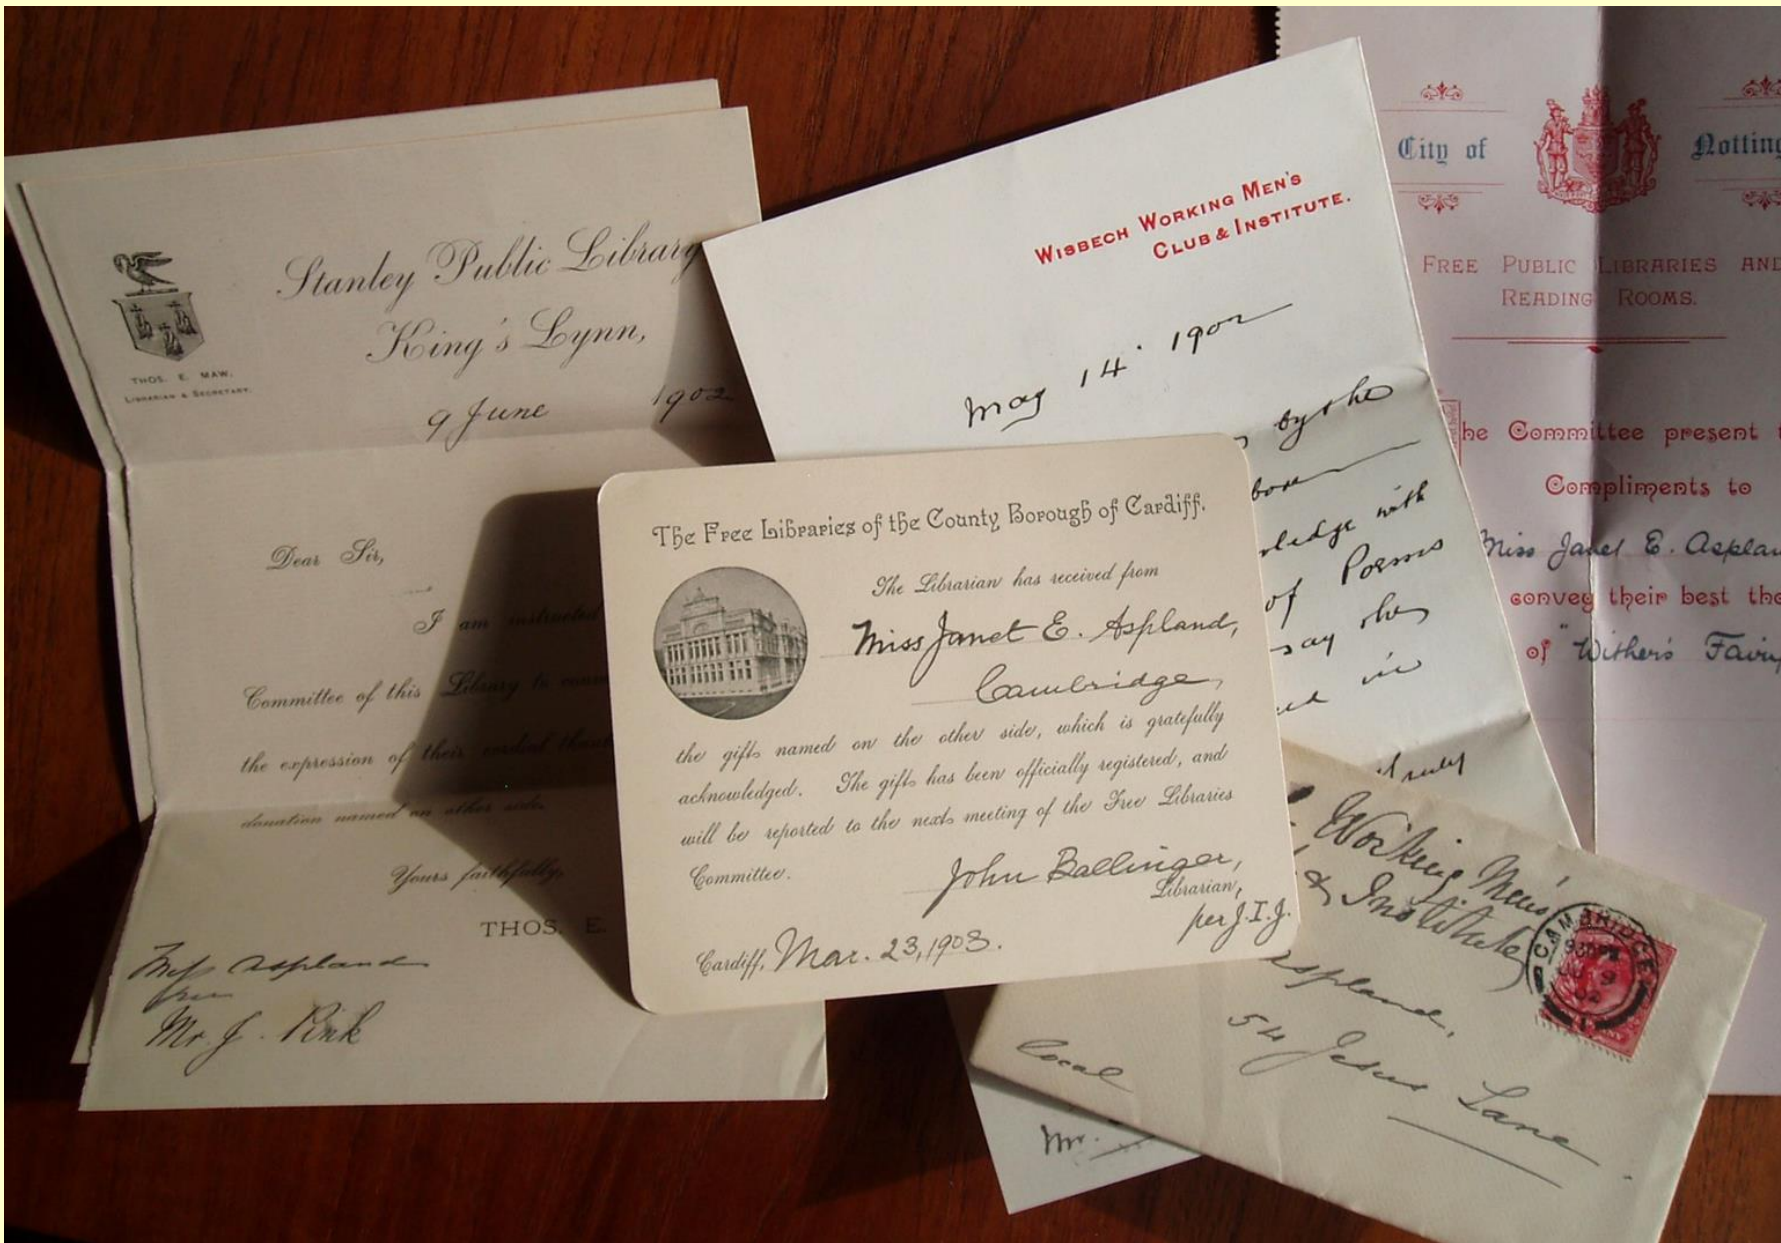 Stanley Public Library
King's Lynn,
THOS. E. MAW.
LIBRARIAN & SECRETARY.
9 June 1902
Dear Sir,
I am instructed
Committee of this Library to
the expression of their cordial
donation named on other side.
Yours faithfully,
THOS. E.
Miss Aspland
from
Mr. J. Pink
WISBECH WORKING MEN'S
CLUB & INSTITUTE.
May 14 1902
by the
with
of Poems
say
in
truly
The Free Libraries of the County Borough of Cardiff.
The Librarian has received from
Miss Janet E. Aspland,
Cambridge,
the gift named on the other side, which is gratefully
acknowledged. The gift has been officially registered, and
will be reported to the next meeting of the Free Libraries
Committee.
John Ballinger,
Librarian,
per J.I.J.
Cardiff, Mar. 23, 1903.
City of Notting
FREE PUBLIC LIBRARIES AND
READING ROOMS.
he Committee present
Compliments to
Miss Janet E. Asplan
convey their best tha
of "Wither's Fair
Working Men's
& Institute
Aspland,
54 Jesus Lane
local
CAMBRIDGE
Mr.